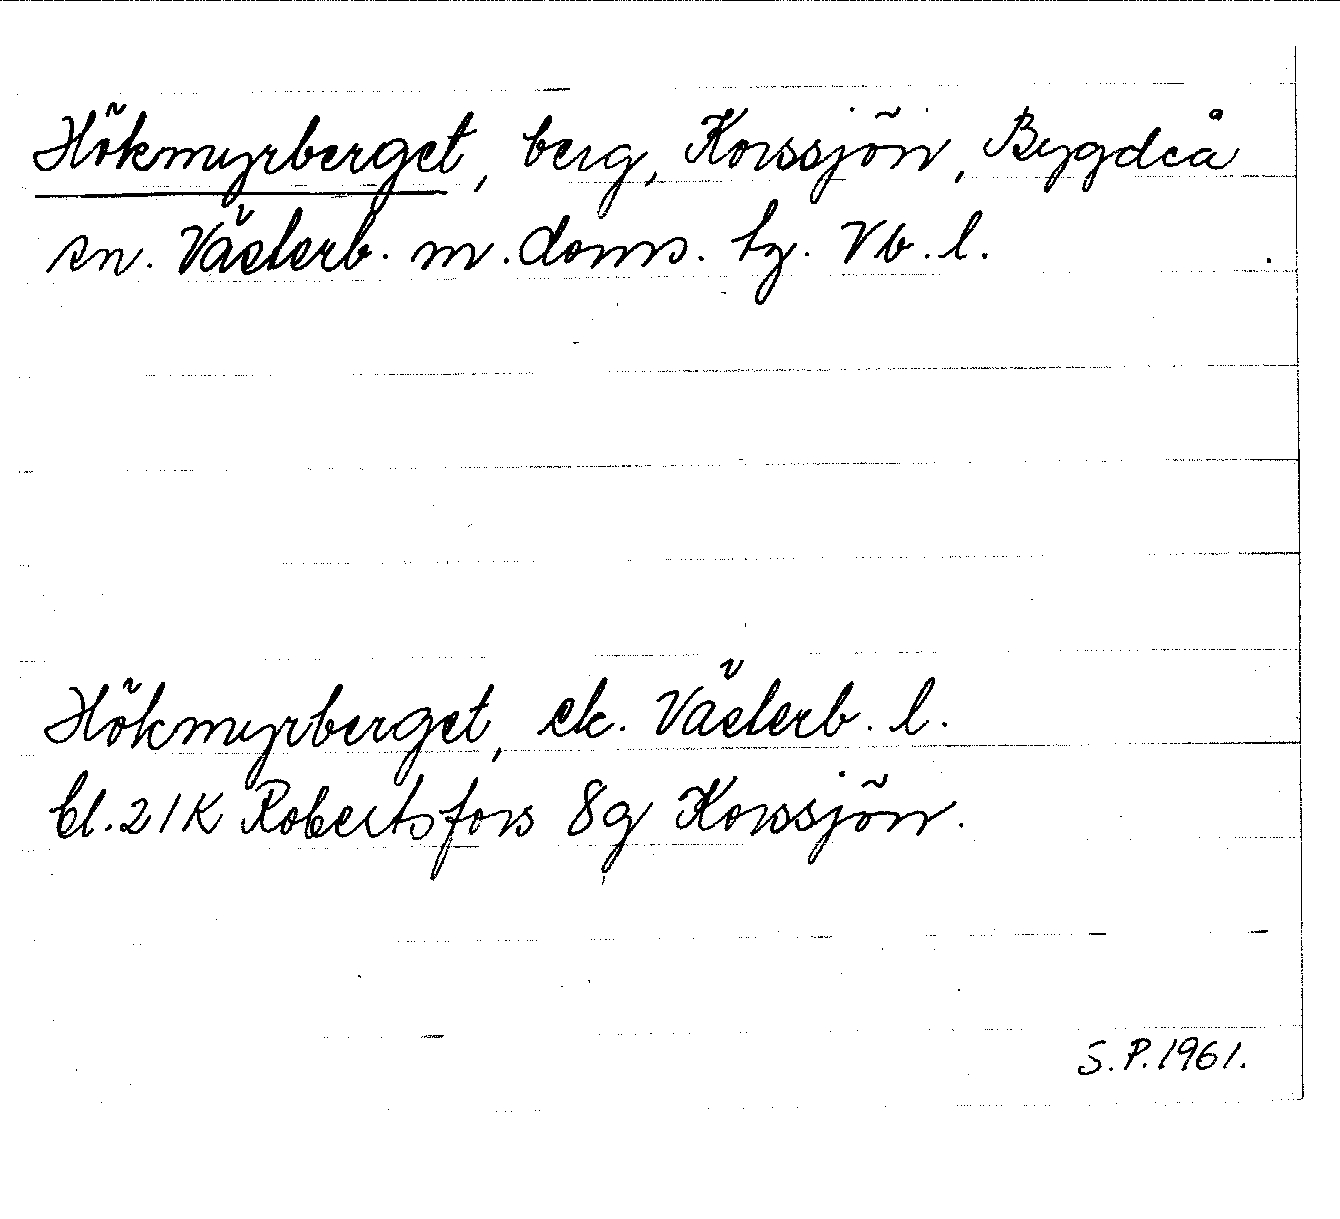 Hökmyrberget, berg, Korssjön, Bygdeå
sn. Västerb. m. doms. tg. Vb. l.
Hökmyrberget, ek. Västerb. l.
bl. 21K Robertsfors 8g Korssjön.
S.P.1961.